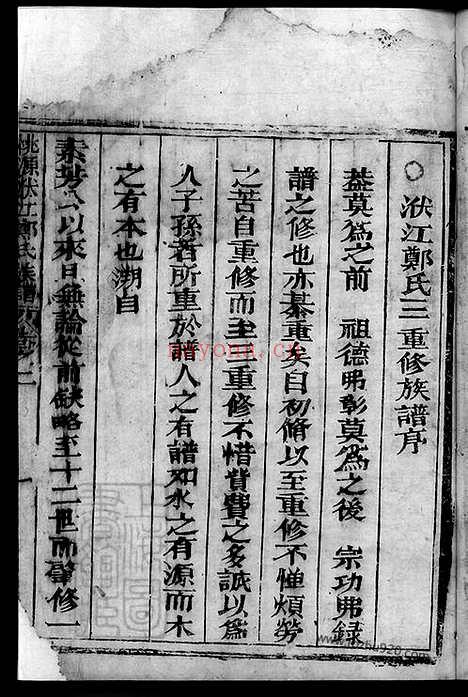 ○洑江鄭氏三重修族譜序
蓋莫爲之前 祖德弗彰莫爲之後 宗功弗録
譜之修也亦綦重矣自初脩以至重修不憚煩勞
之苦自重修而至三重修不惜貲費之多誠以爲
人子孫者所重於譜人之有譜如水之有源而木
之有本也溯自
素芬公以來日無論從前缺略至十二世而肇修一
桃源洑江鄭氏族譜 卷之二 一